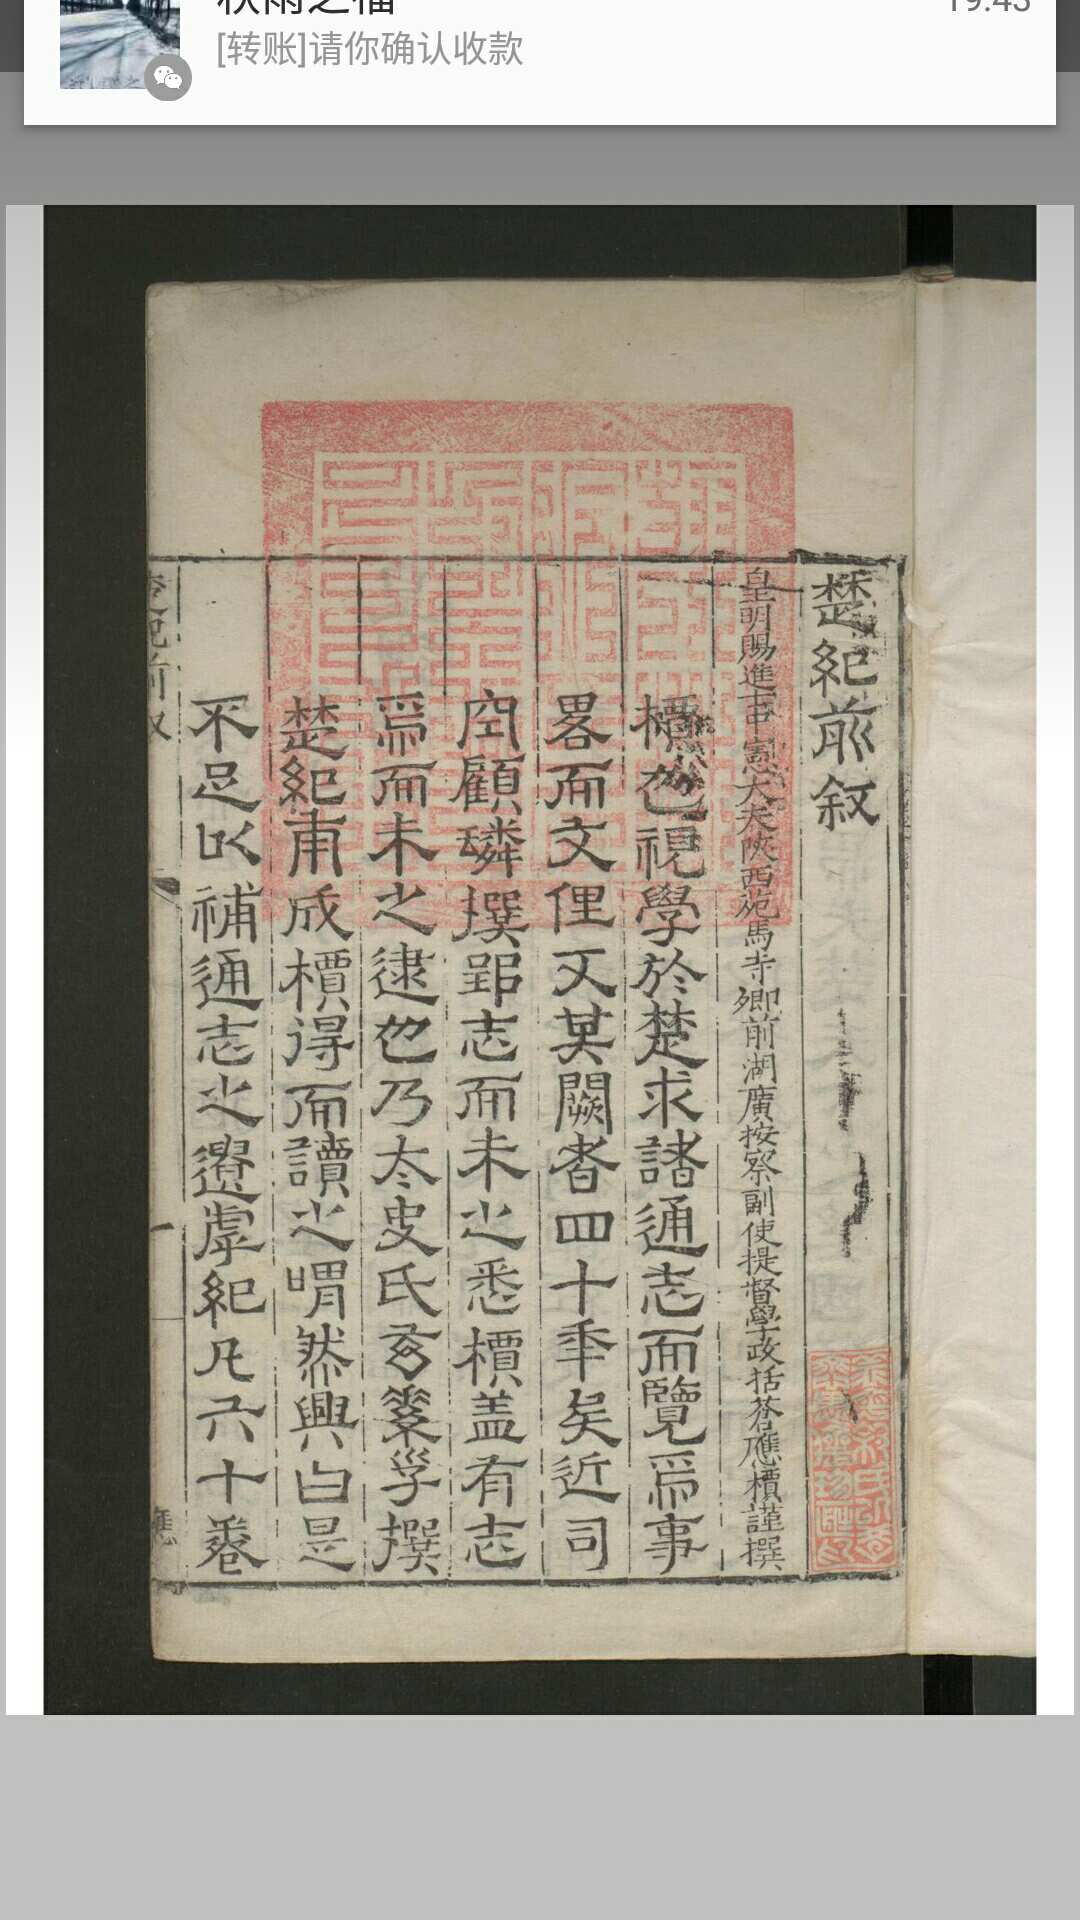 秋雨之福
19:43
[转账]请你确认收款
楚紀前叙
皇明賜進士中憲大夫陝西苑馬寺卿前湖廣按察副使提督學政括蒼應檟謹撰
檟也視學於楚求諸通志而覽焉事
畧而文俚又其闕者四十年矣近司
空顧璘撰郢志而未之悉檟盖有志
焉而未之逮也乃太史氏玄素孚撰
楚紀甫成檟得而讀之喟然興曰是
不足以補通志之遺虖紀凡六十卷
楚紀前叙
一